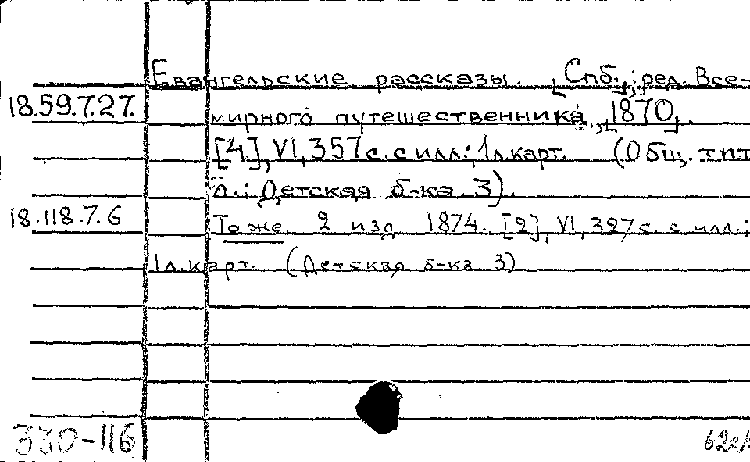 Евангельские рассказы. [Спб., ред. Все-
18.59.7.27. мирного путешественника, 1870].
[4], VI, 357 с. с илл.; 1 л. карт. (Общ. тит.
л.: Детская б-ка 3).
18.118.7.6 То же. 2 изд. 1874. [2], VI, 327 с. с илл.;
1 л. карт. (Детская б-ка 3)
330-116